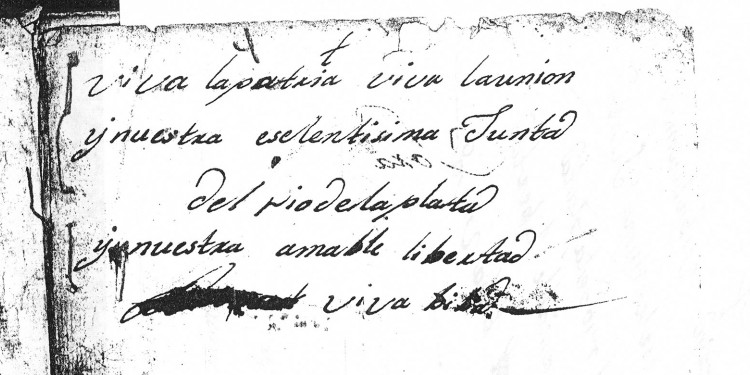 viva lapatria viva launion
ynuestra eselentisima Junta
del riodelaplata
ynuestra amable libertad
viva biba